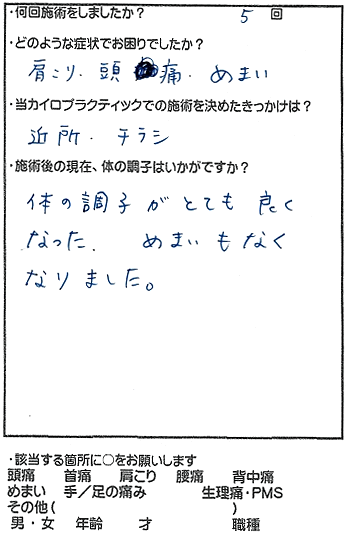 ・何回施術をしましたか？ 5 回
・どのような症状でお困りでしたか？
肩こり・頭痛・めまい
・当カイロプラクティックでの施術を決めたきっかけは？
近所・チラシ
・施術後の現在、体の調子はいかがですか？
体の調子がとても良く
なった、めまいもなく
なりました。
・該当する箇所に○をお願いします
頭痛 首痛 肩こり 腰痛 背中痛
めまい 手／足の痛み 生理痛・PMS
その他( )
男・女 年齢 才 職種